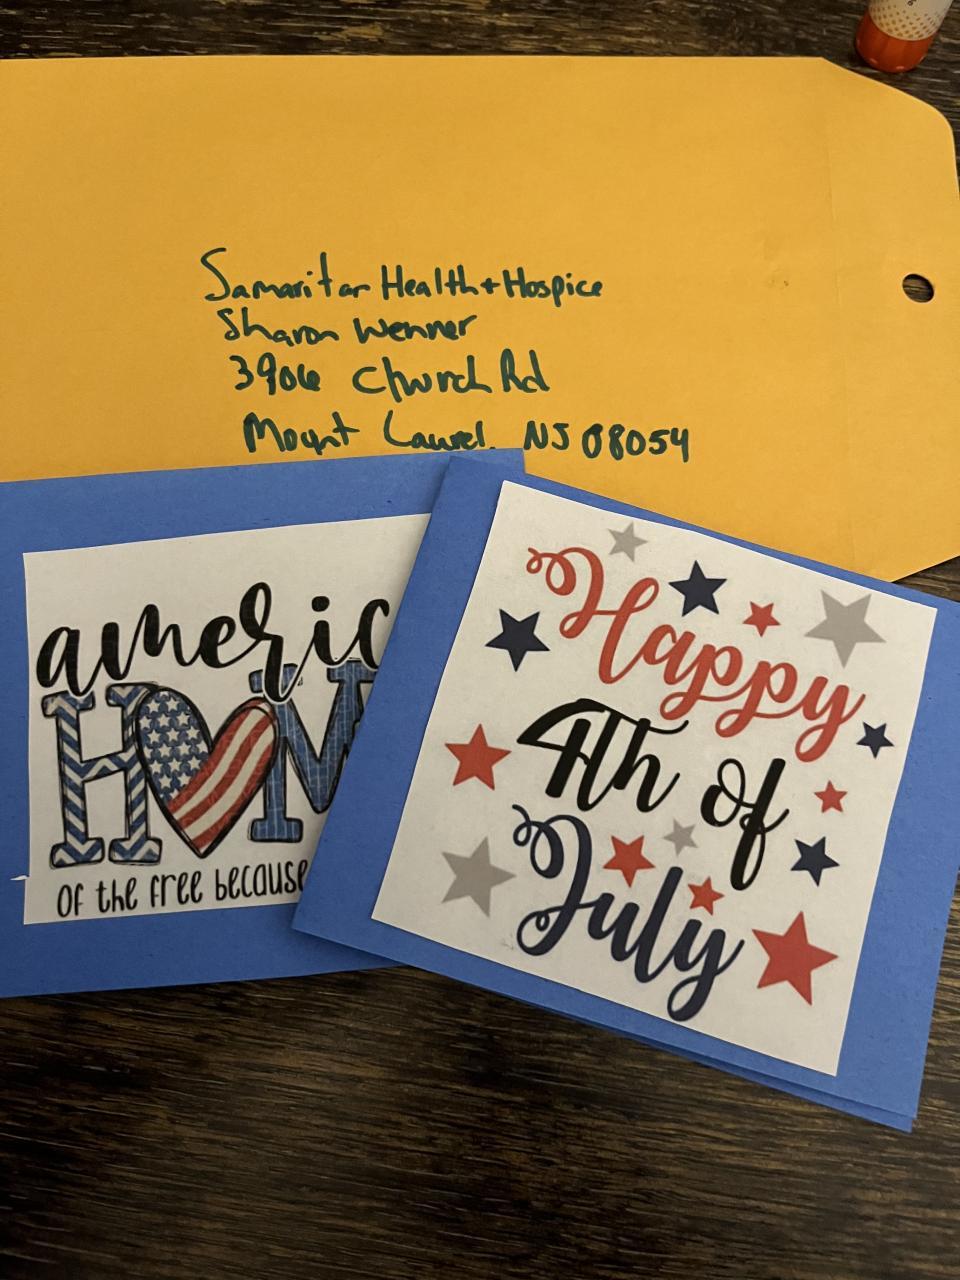 Samaritan Health + Hospice
Sharon Wenner
3906 Church Rd
Mount Laurel, NJ 08054
americ
HOM
OF the Free because
Happy
4Th of
July